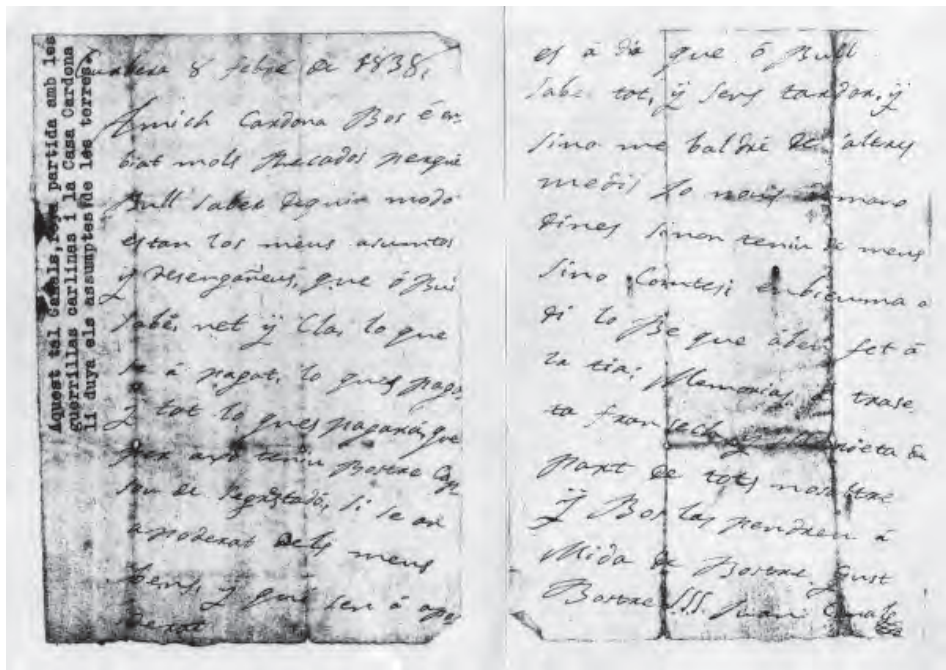 Aquest tal Canals, feya partida amb les
guerrillas carlinas i la Casa Cardona
li duya els assumptes de les terres.
8 febre de 1838,
Amich Cardona Bos é en-
biat mols Recados perque
Bull saber de quin modo
estan los meus asuntos
y desengañeus, que ó Bui
sabé, net ÿ Cla, lo que
se á pagat, lo ques pag
y tot lo ques pagará, que
per axo teniu Bostre
de segrestadó, si se an
apoderat dels meus
bens, y qui sen á apo
derat
es á di que ó Bull
sabe tot, ÿ sens tardor, ÿ
sino me baldré de altres
medis lo
dines sinon teniu de meus
sino Comtes; enbieuma a
di lo Be que áбeu fet á
la tia; Memorias á
ta Fransech y de
part de tots nosaltre
ÿ Bos las pendreu á
Mida de Bostre Gust
Bostre SSS. Juan Canals